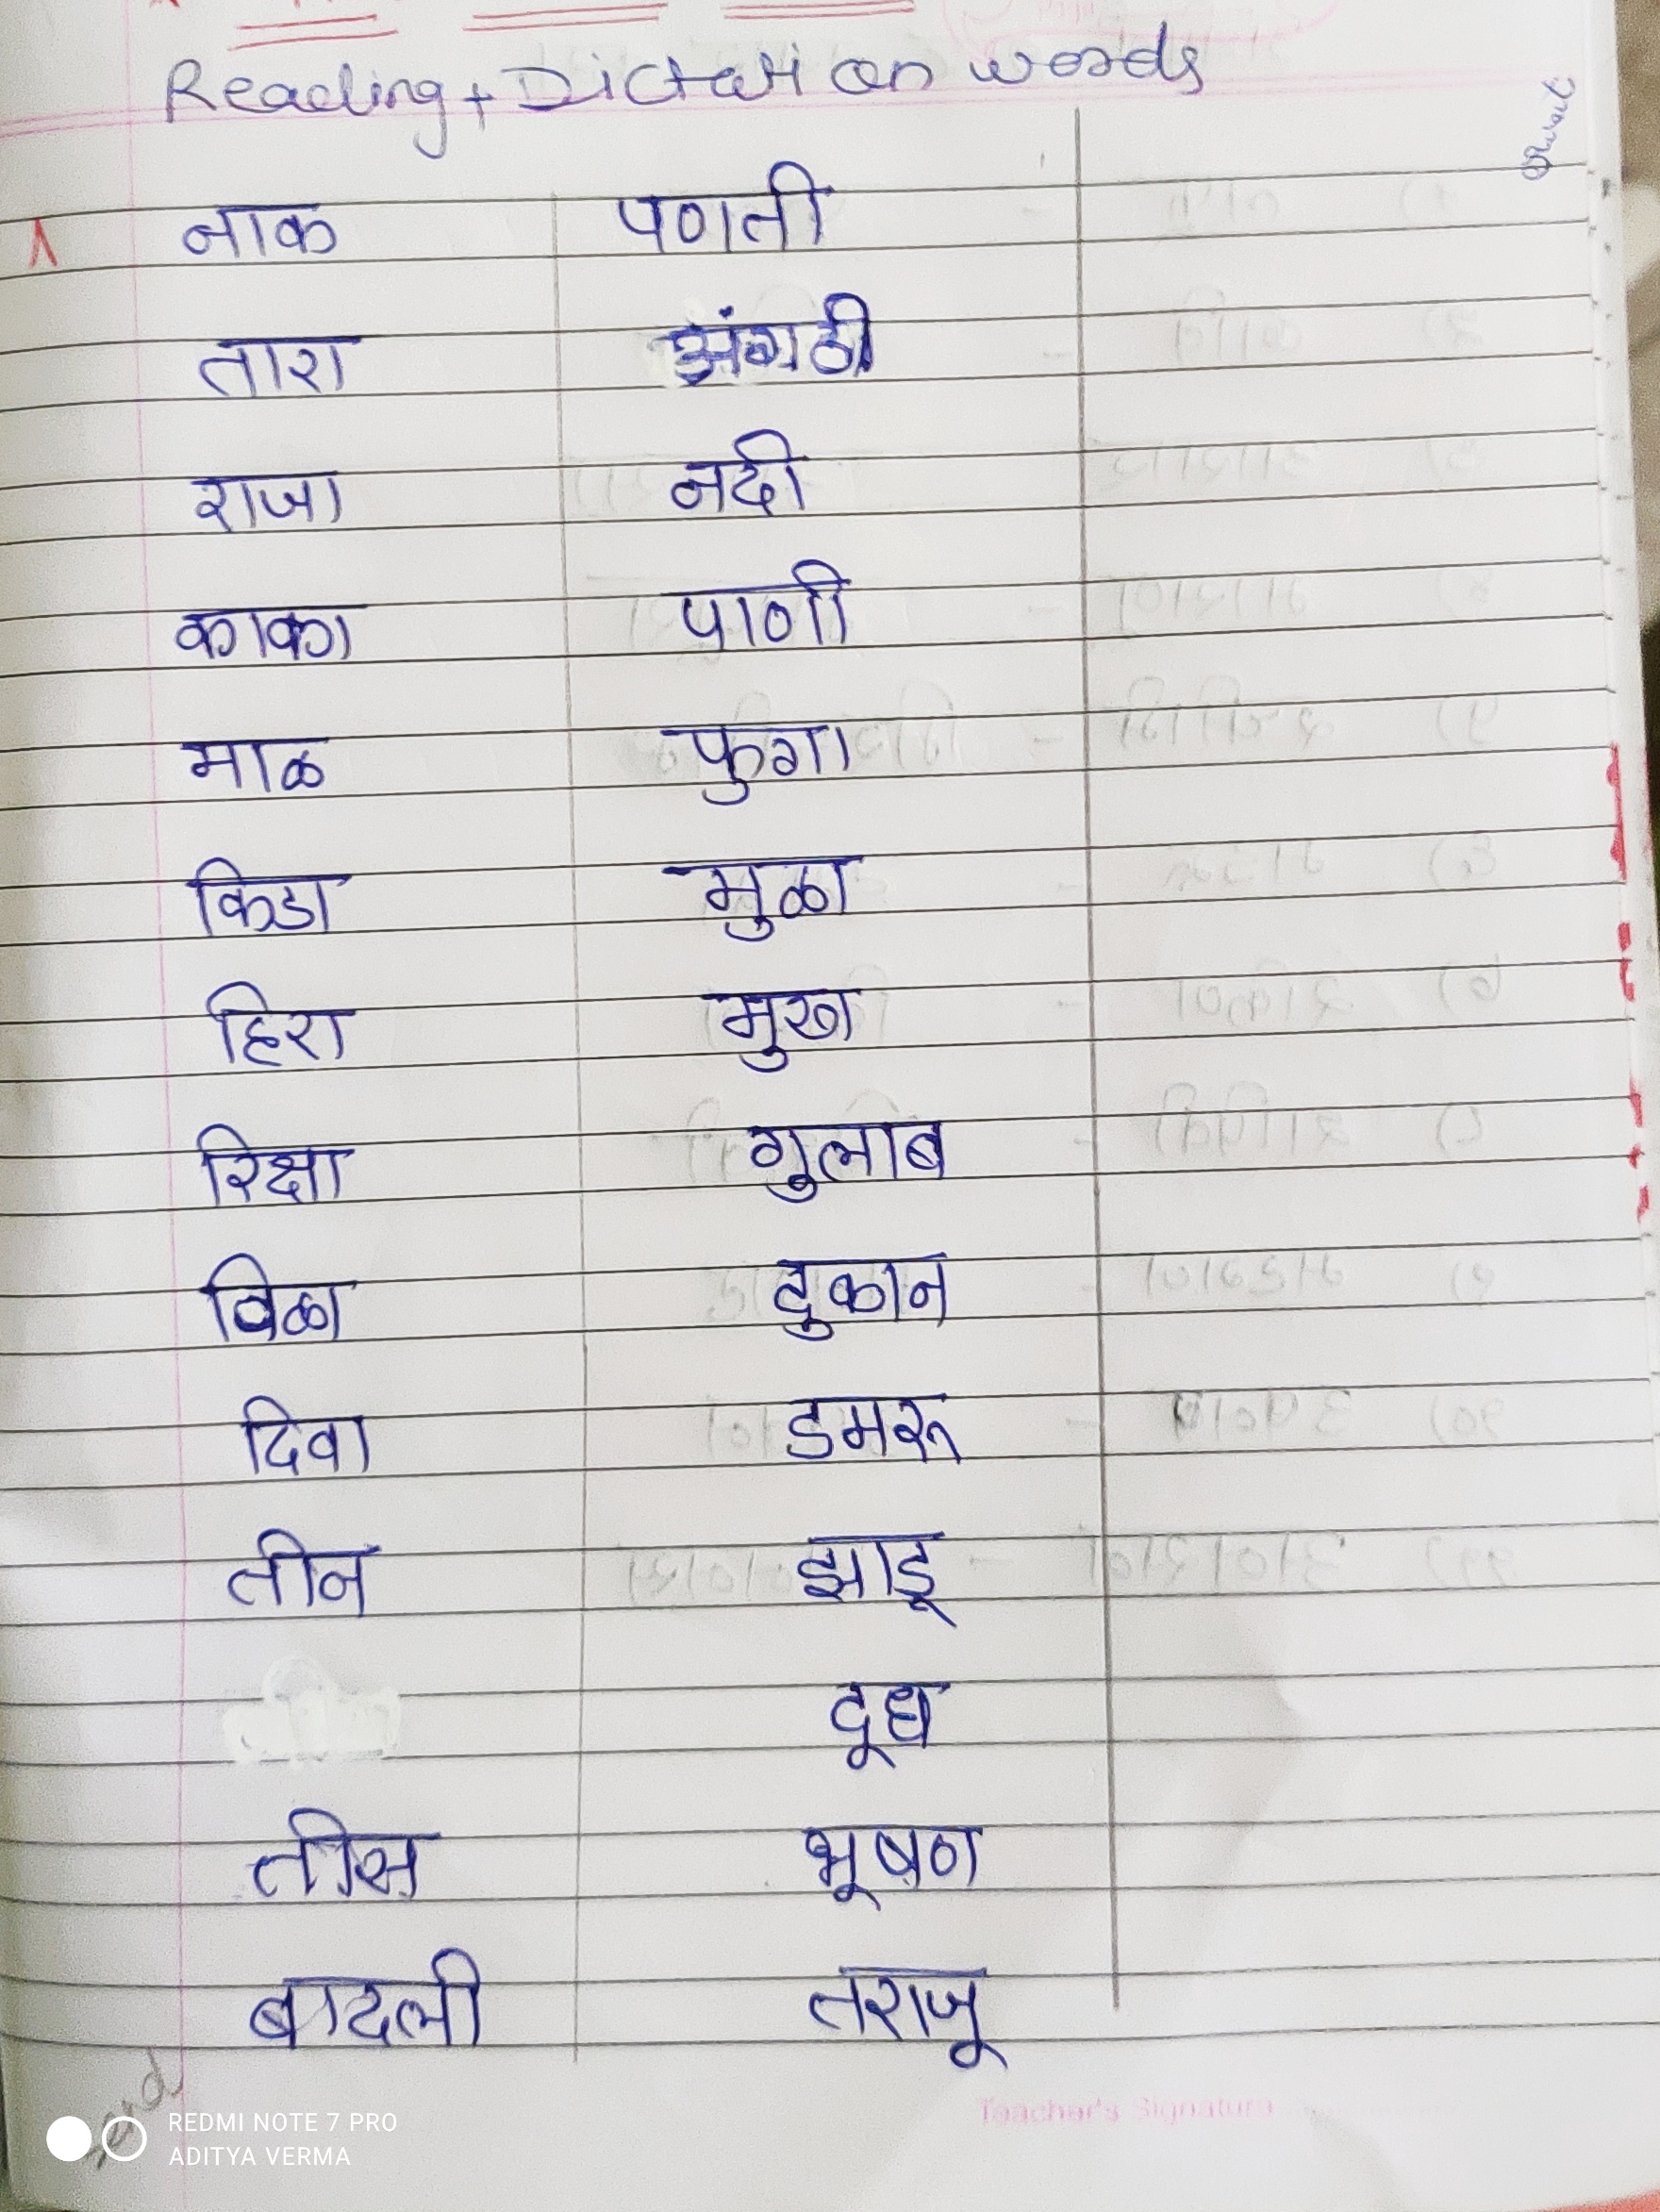 Reading + Dictation words
नाक पणती
तारा अंगठी
राजा नदी
काका पाणी
माळ फुगा
किडा मुळा
हिरा मुख
रिक्षा गुलाब
विळा दुकान
दिवा डमरू
तीन झाडू
दूध
तीस भूषण
बादली तराजू
send
Teacher's Signature
REDMI NOTE 7 PRO
ADITYA VERMA